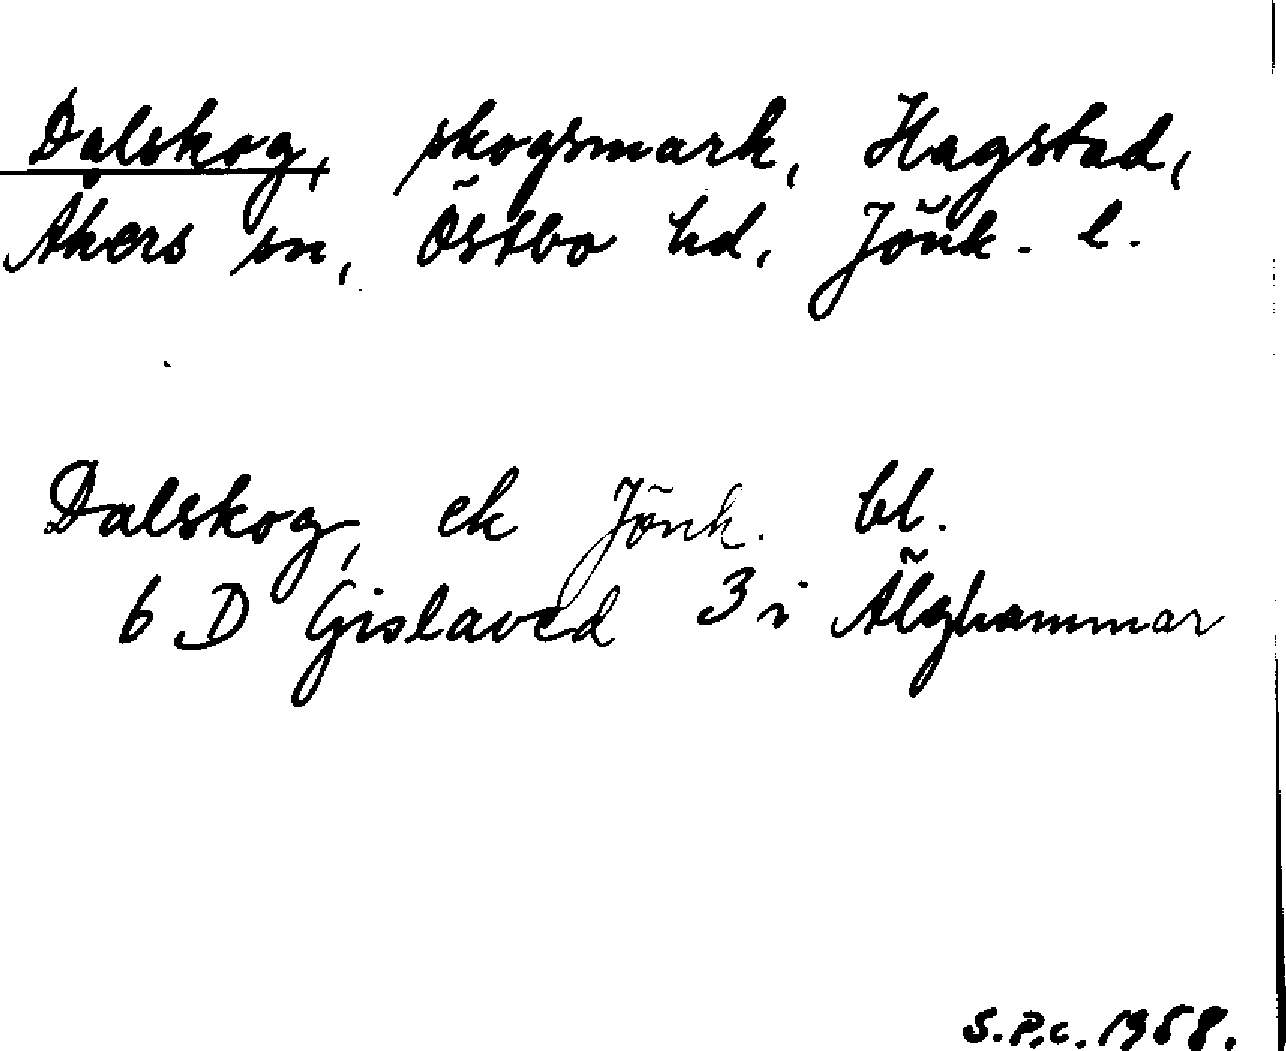 Dalskog, skogsmark, Hagstad,
Åkers sn, Östbo hd, Jönk. l.
Dalskog, ek Jönk. bl.
6 D Gislaved 3 i Älghammar
S.P.c. 1958.